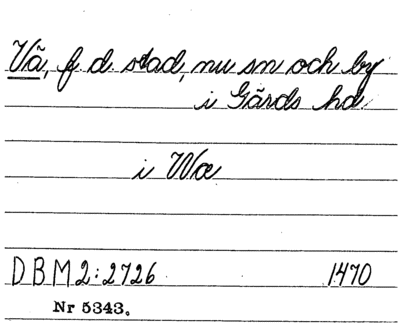 Vã, f. d. stad, nu sn och by
i Gärds hd
i Wæ
DBM 2:2726 1470
Nr 5343.